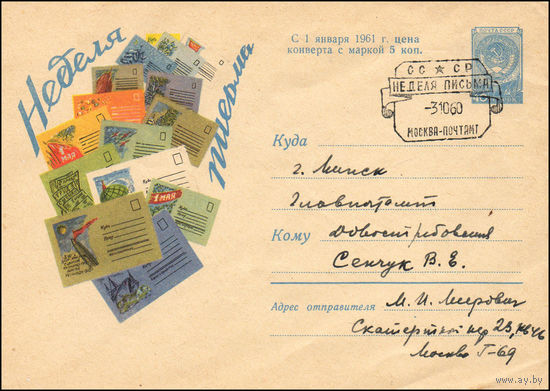 Неделя письма
С 1 января 1961 г. цена
конверта с маркой 5 коп.
ПОЧТА СССР
СС ★ СР
НЕДЕЛЯ ПИСЬМА
-31060
МОСКВА-ПОЧТАМТ
Куда
г. Минск
Главпочтамт
Кому
Довостребования
Сенчук В. Е.
Адрес отправителя
М. И. Меерович
Скатертный пер 23, кв 46
Москва Г-69
1 МАЯ
www.ay.by